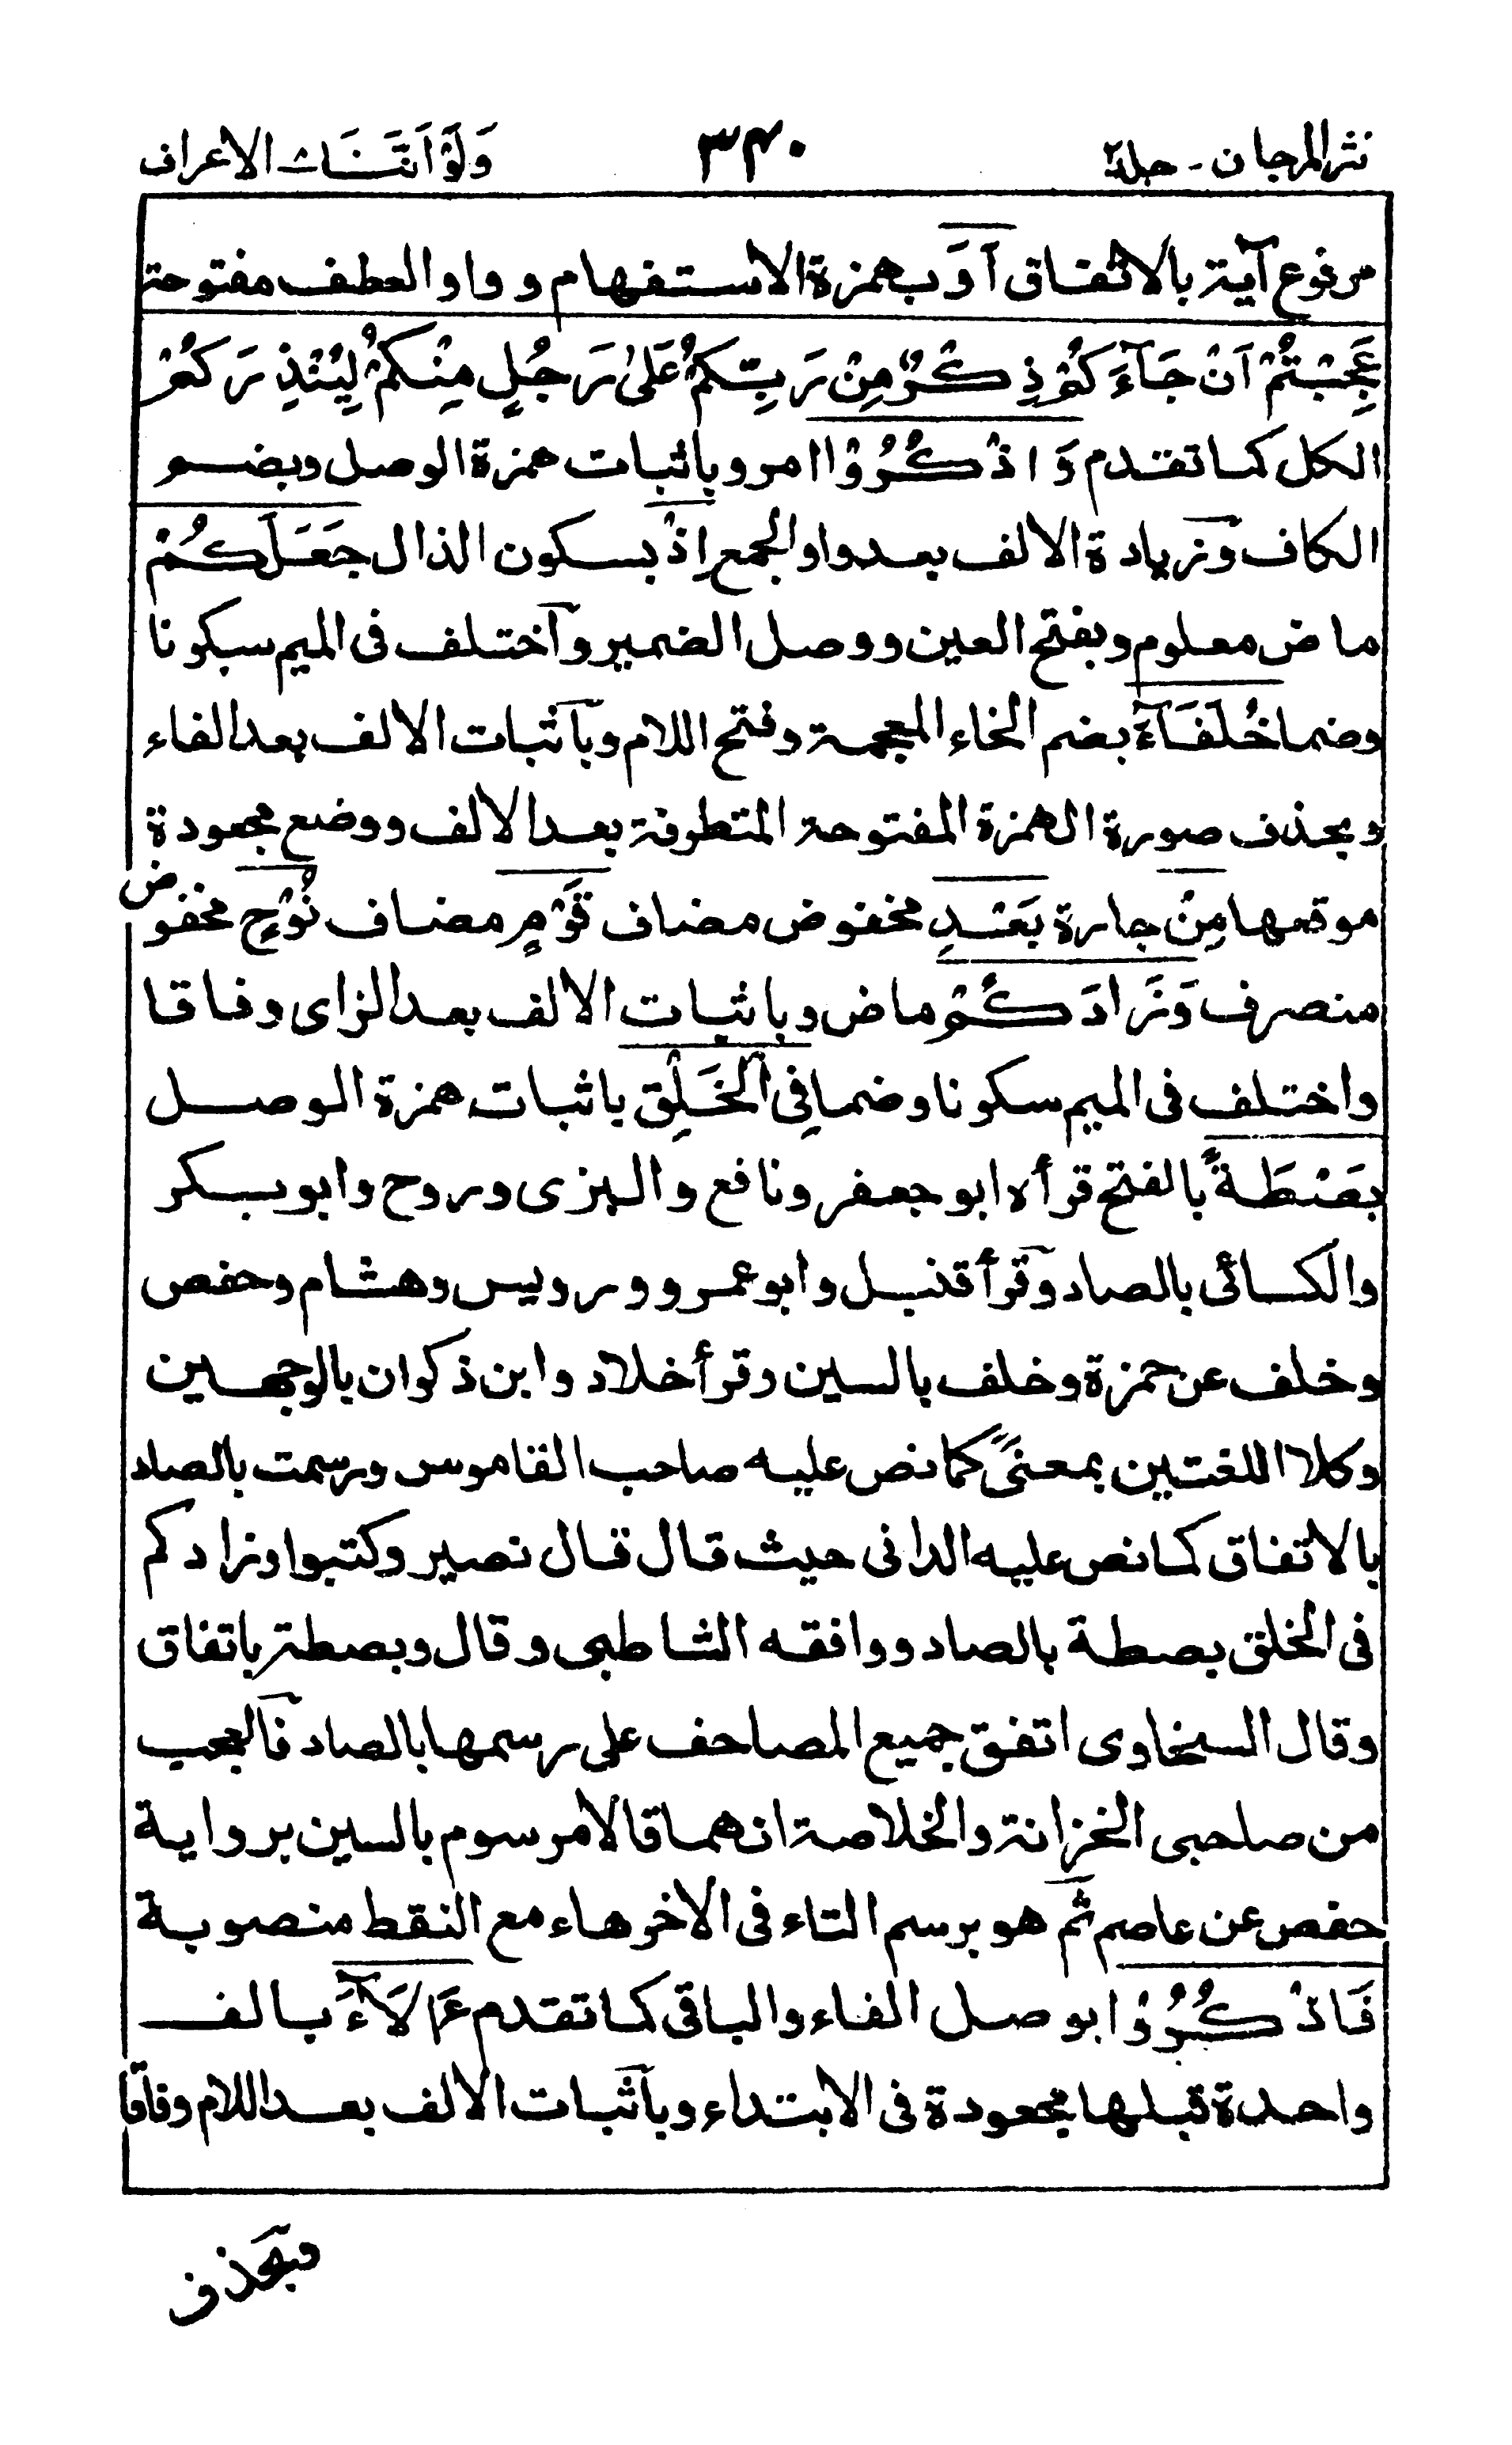 نثر المرجان - جلد٢ ٣٤٠ وَلَوْ اَنَّنَا الاعراف
مرفوع آية بالاتفاق اَوَ بهمزة الاستفهام وواو العطف مفتوحة
عَجِبْتُمْ اَنْ جَآءَكُمْ ذِكْرٌ مِنْ رَبِّكُمْ عَلىٰ رَجُلٍ مِنْكُمْ لِيُنْذِرَكُمْ
الكل كما تقدم وَاذْكُرُوْا امر وباثبات همزة الوصل وبضم
الكاف وزيادة الالف بعد واو الجمع اِذْ بسكون الذال جَعَلَكُمْ
ماض معلوم وبفتح العين ووصل الضمير واختلف فى الميم سكونا
وضما خُلَفَآءَ بضم الخاء المعجمة وفتح اللام وباثبات الالف بعد الفاء
وبحذف صورة الهمزة المفتوحة المتطرفة بعد الالف ووضع مجعودة
موقعها مِنْ جارة بَعْدِ مخفوض مضاف قَوْمِ مضاف نُوْحٍ مخفوض
منصرف وَزَادَكُمْ ماض وباثبات الالف بعد الزاى وفاقا
واختلف فى الميم سكونا وضما فِى الْخَلْقِ باثبات همزة الوصل
بَصْطَةً بالفتح قرأه ابو جعفر ونافع والبزى وروح وابو بكر
والكسائى بالصاد وقرأ قنبل وابو عمرو ورويس وهشام وحفص
وخلف عن حمزة وخلف بالسين وقرأ خلاد وابن ذكوان بالوجهين
وكلا اللغتين بمعنىً كما نص عليه صاحب القاموس ورسمت بالصاد
بالاتفاق كما نص عليه الدانى حيث قال قال نصير وكتبوا وزادكم
فى الخلق بصطة بالصاد ووافقه الشاطبى وقال وبصطة باتفاق
وقال السخاوى اتفق جميع المصاحف على رسمها بالصاد فالعجب
من صاحبى الخزانة والخلاصة انهما قالا مرسوم بالسين برواية
حفص عن عاصم ثم هو برسم التاء فى الاخر هاء مع النقط منصوبة
فَاذْكُرُوْا بوصل الفاء والباقى كما تقدم ءَالَآءَ بالف
واحدة قبلها مجعودة فى الابتداء وباثبات الالف بعد اللام وفاقا
وبحذف